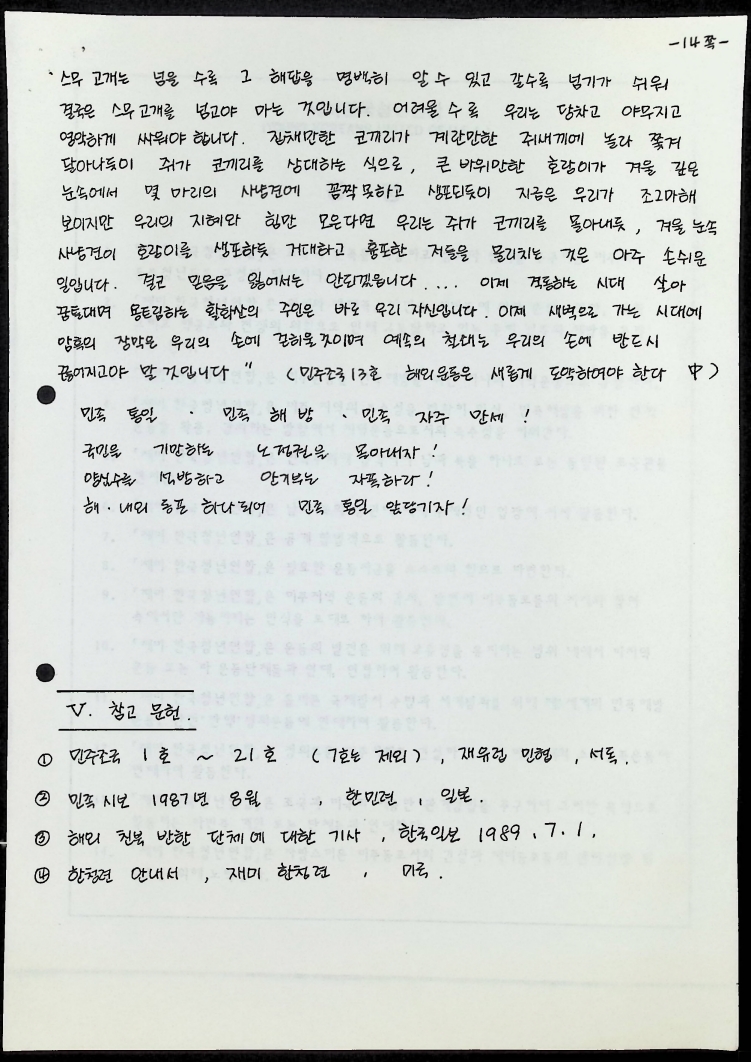 -14쪽-
스무 고개는 넘을 수록 그 해답을 명백히 알 수 있고 갈수록 넘기가 쉬워
결국은 스무고개를 넘고야 마는 것입니다. 어려울수록 우리는 당차고 야무지고
영악하게 싸워야 합니다. 집채만한 코끼리가 계란만한 쥐새끼에 놀라 쫓겨
달아나듯이 쥐가 코끼리를 상대하는 식으로, 큰 바위만한 호랑이가 겨울 깊은
눈속에서 몇 마리의 사냥견에 꼼짝 못하고 생포되듯이 지금은 우리가 조그마해
보이지만 우리의 지혜와 힘만 모은다면 우리는 쥐가 코끼리를 몰아내듯, 겨울 눈속
사냥견이 호랑이를 생포하듯 거대하고 흉포한 저들을 물리치는 것은 아주 손쉬운
일입니다. 결코 믿음을 잃어서는 안되겠읍니다.... 이제 격동하는 시대 살아
꿈틀대며 용트림하는 활화산의 주인은 바로 우리 자신입니다. 이제 새벽으로 가는 시대에
암흑의 장막은 우리의 손에 걷히울것이며 예속의 철쇄는 우리의 손에 반드시
끊어지고야 말 것입니다" (민주조국 13호 해외운동은 새롭게 도약하여야 한다 中)
민족 통일 · 민족 해방 · 민족 자주 만세!
국민을 기만하는 노정권을 몰아내자!
양심수를 석방하고 안기부는 자폭하라!
해·내외 동포 하나되어 민족 통일 앞당기자!
V. 참고 문헌.
① 민주조국 1호 ~ 21호 (7호는 제외), 재유럽 민협, 서독.
② 민족시보 1987년 8월 , 한민련, 일본.
③ 해외 친북 반한 단체에 대한 기사, 한국일보 1989. 7. 1.
④ 한청련 안내서, 재미 한청련, 미국.